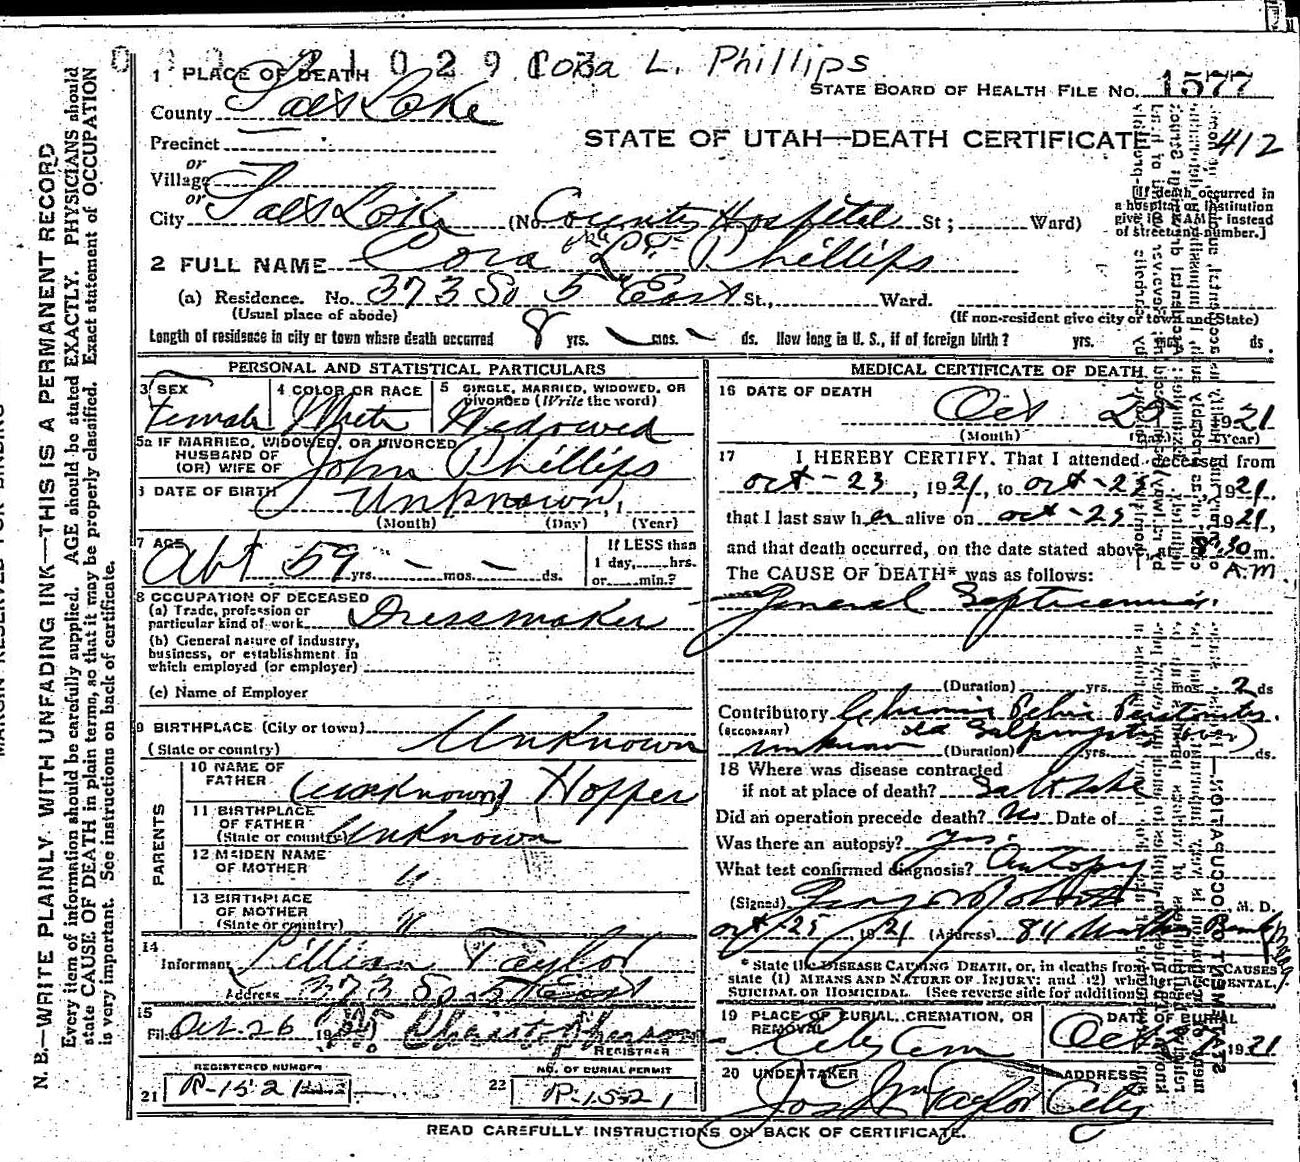 1029 Cora L. Phillips
1 PLACE OF DEATH
STATE BOARD OF HEALTH FILE NO. 1577
County Salt Lake
STATE OF UTAH—DEATH CERTIFICATE 412
Precinct
or
Village
or
City Salt Lake (No. County Hospital St; Ward)
[If death occurred in
a hospital or institution
give its NAME instead
of street and number.]
2 FULL NAME Cora L. Phillips
(a) Residence. No. 373 So 5 East St., Ward.
(Usual place of abode) (If non-resident give city or town and State)
Length of residence in city or town where death occurred 8 yrs. — mos. — ds. How long in U. S., if of foreign birth? yrs. ds.
PERSONAL AND STATISTICAL PARTICULARS
3 SEX Female
4 COLOR OR RACE White
5 SINGLE, MARRIED, WIDOWED, OR
DIVORCED (Write the word)
Widowed
5a IF MARRIED, WIDOWED, OR DIVORCED
HUSBAND OF
(OR) WIFE OF John Phillips
6 DATE OF BIRTH Unknown
(Month) (Day) (Year)
7 AGE Abt 59 yrs. — mos. — ds.
If LESS than
1 day, hrs.
or min.?
8 OCCUPATION OF DECEASED
(a) Trade, profession or
particular kind of work Dressmaker
(b) General nature of industry,
business, or establishment in
which employed (or employer)
(c) Name of Employer
9 BIRTHPLACE (City or town)
(State or country) Unknown
PARENTS
10 NAME OF
FATHER (unknown) Hopper
11 BIRTHPLACE
OF FATHER
(State or country) Unknown
12 MAIDEN NAME
OF MOTHER "
13 BIRTHPLACE
OF MOTHER
(State or country) "
14
Informant Lillian Taylor
Address 373 So. 5 East
15
Filed Oct. 26 19
REGISTRAR
REGISTERED NUMBER
21 P-1521
NO. OF BURIAL PERMIT
22 P-1521
MEDICAL CERTIFICATE OF DEATH
16 DATE OF DEATH
Oct 1921
(Month) (Day) (Year)
17 I HEREBY CERTIFY, That I attended deceased from
Oct-23, 1921, to Oct-25 1921,
that I last saw her alive on Oct-25 1921,
and that death occurred, on the date stated above, at 30 m.
A.M
The CAUSE OF DEATH* was as follows:
General Septicemia.
(Duration) yrs. mos. 2 ds
Contributory Chronic Pelvic Peritonitis.
(SECONDARY) old Salpingitis
unknown (Duration) yrs. mos. ds.
18 Where was disease contracted
if not at place of death? Salt Lake
Did an operation precede death? No Date of
Was there an autopsy? yes
What test confirmed diagnosis? Autopsy
(Signed) M. D.
Oct 25, 1921 (Address) 811
* State the DISEASE CAUSING DEATH, or, in deaths from CAUSES
state (1) MEANS AND NATURE OF INJURY; and (2) whether
SUICIDAL OR HOMICIDAL. (See reverse side for additional
19 PLACE OF BURIAL, CREMATION, OR
REMOVAL
City Cem
DATE BURIAL
Oct 1921
20 UNDERTAKER
Jos Wm Taylor
ADDRESS
City
READ CAREFULLY INSTRUCTIONS ON BACK OF CERTIFICATE.
N. B.—WRITE PLAINLY WITH UNFADING INK—THIS IS A PERMANENT RECORD
Every item of information should be carefully supplied. AGE should be stated EXACTLY. PHYSICIANS should
state CAUSE OF DEATH in plain terms, so that it may be properly classified. Exact statement of OCCUPATION
is very important. See instructions on back of certificate.